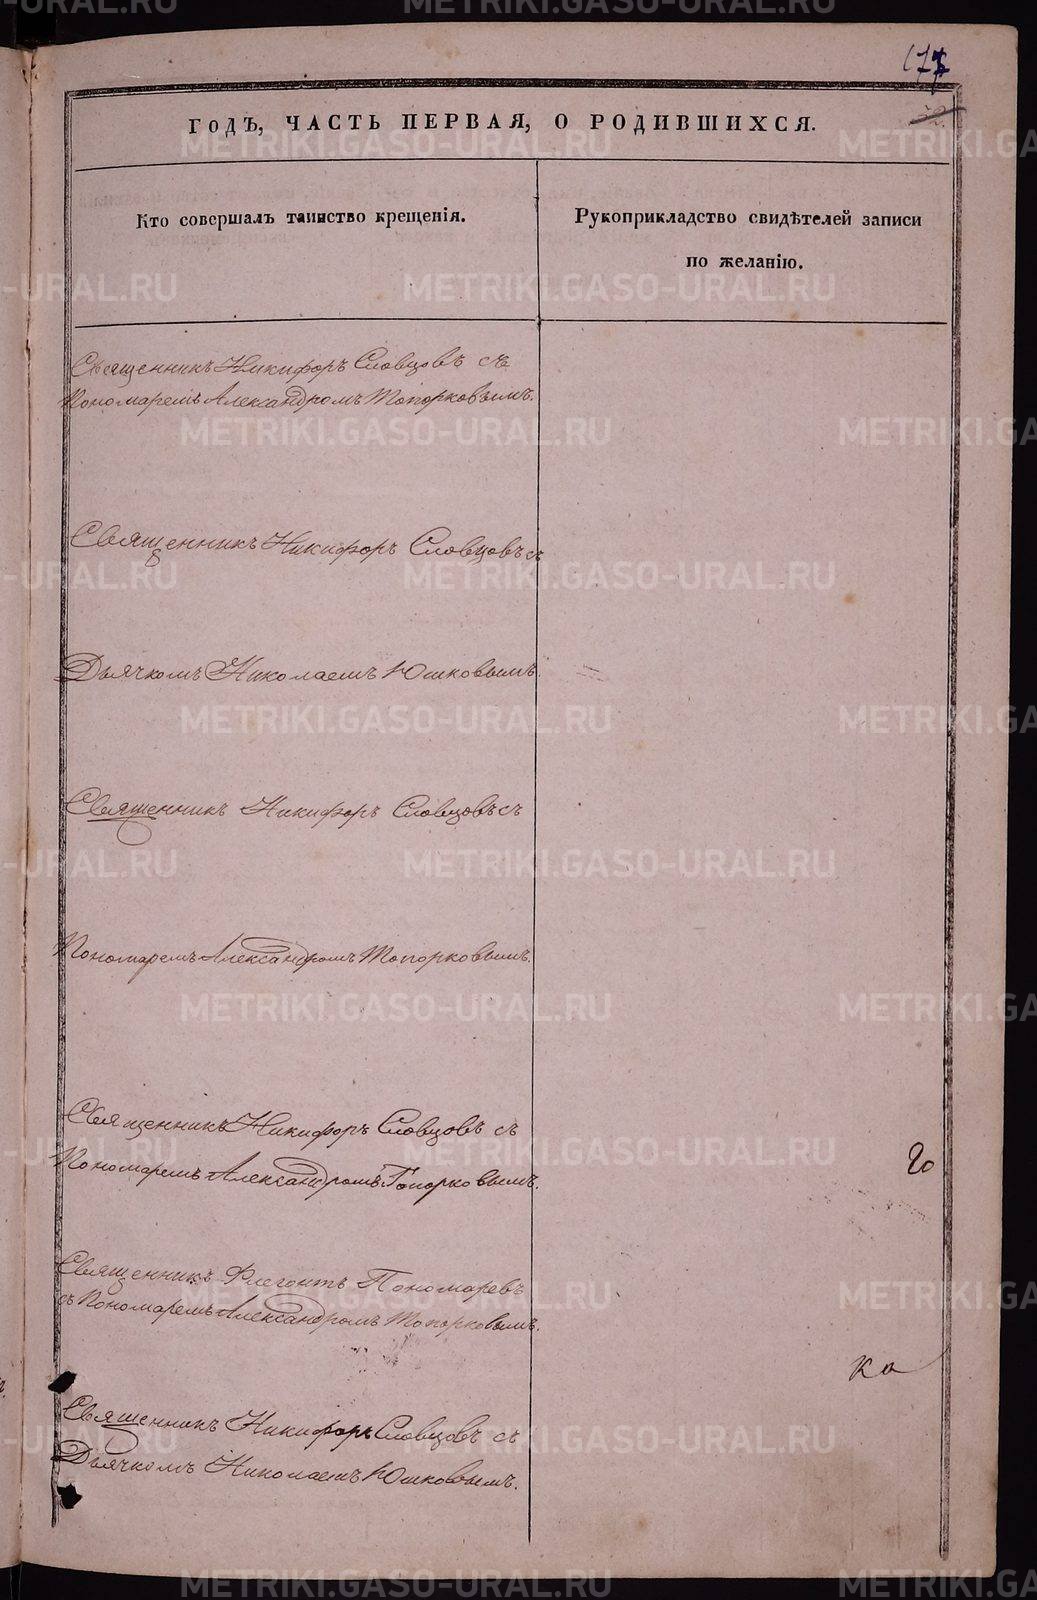 METRIKI.GASO-URAL.RU
177
ГОДЪ, ЧАСТЬ ПЕРВАЯ, О РОДИВШИХСЯ.
Кто совершалъ таинство крещенія.
Рукоприкладство свидѣтелей записи
по желанію.
Священникъ Никифоръ Словцовъ съ
Пономаремъ Александромъ Топорковымъ.
Священникъ Никифоръ Словцовъ съ
Дьячкомъ Николаемъ Юшковымъ.
Священникъ Никифоръ Словцовъ съ
Пономаремъ Александромъ Топорковымъ.
Священникъ Никифоръ Словцовъ съ
Пономаремъ Александромъ Топорковымъ.
Священникъ Флегонтъ Пономаревъ
съ Пономаремъ Александромъ Топорковымъ.
ка
Священникъ Никифоръ Словцовъ съ
Дьячкомъ Николаемъ Юшковымъ.